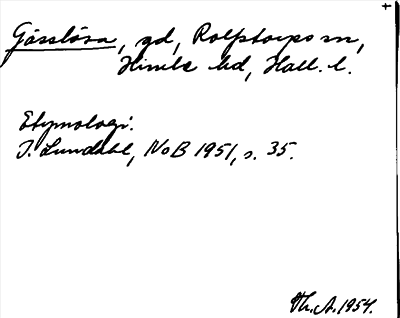 Gässlösa, gd, Rolfstorps sn,
Himle hd, Hall. l.
Etymologi.
I. Lundahl, NoB 1951, s. 35.
Th. A. 1954.